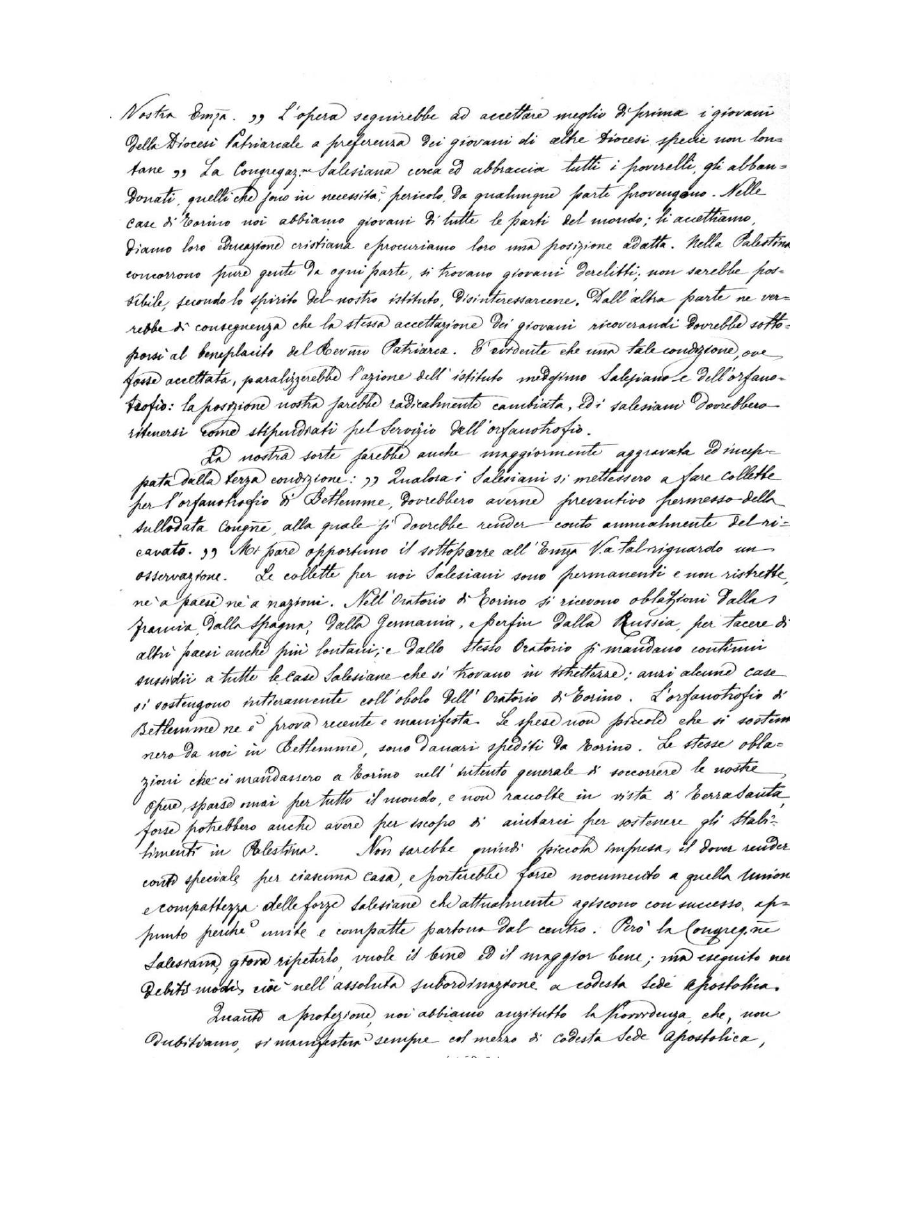 Vostra Emza. „ L'opera seguirebbe ad accettare meglio di prima i giovani
della Diocesi Patriarcale a preferenza dei giovani di altre Diocesi specie non lon=
tane „ La Congregaz.ne Salesiana cerca ed abbraccia tutti i poverelli, gli abban=
donati, quelli che sono in necessità, pericolo, da qualunque parte provengano. Nelle
case di Torino noi abbiamo giovani di tutte le parti del mondo; li accettiamo,
diamo loro educazione cristiana e procuriamo loro una posizione adatta. Nella Palestina
concorrono pure gente da ogni parte, si trovano giovani derelitti; non sarebbe pos=
sibile, secondo lo spirito del nostro istituto, disinteressarcene. Dall'altra parte ne ver=
rebbe di conseguenza che la stessa accettazione dei giovani ricoverandi dovrebbe sotto=
porsi al beneplacito del Revmo Patriarca. È evidente che una tale condizione, ove
fosse accettata, paralizzerebbe l'azione dell'istituto medesimo Salesiano e dell'orfano=
trofio: la posizione nostra sarebbe radicalmente cambiata, ed i salesiani dovrebbero
ritenersi come stipendiati pel servizio dell'orfanotrofio.
La nostra sorte sarebbe anche maggiormente aggravata ed incep=
pata dalla terza condizione: „ Qualora i Salesiani si mettessero a fare collette
per l'orfanotrofio di Betlemme, dovrebbero averne preventivo permesso della
sullodata Congne, alla quale si dovrebbe render conto annualmente del ri=
cavato. „ Mi pare opportuno il sottoporre all'Emza Va tal riguardo un
osservazione. Le collette per noi Salesiani sono permanenti e non ristrette,
nè a paesi nè a nazioni. Nell'Oratorio di Torino si ricevono oblazioni dalla
Francia, dalla Spagna, dalla Germania, e perfin dalla Russia, per tacere di
altri paesi anche più lontani; e dallo stesso Oratorio si mandano continui
sussidii a tutte le case Salesiane che si trovano in strettezze; anzi alcune case
si sostengono interamente coll'obolo dell'Oratorio di Torino. L'orfanotrofio di
Betlemme ne è prova recente e manifesta. Le spese non piccole che si sosten
nero da noi in Betlemme, sono danari spediti da Torino. Le stesse obla=
zioni che ci mandassero a Torino nell'intento generale di soccorrere le nostre
opere, sparse omai per tutto il mondo, e non raccolte in vista di Terra Santa,
forse potrebbero anche avere per iscopo di aiutarci per sostenere gli stabi=
limenti in Palestina. Non sarebbe quindi piccola impresa, il dover render
conto speciale per ciascuna casa, e porterebbe forse nocumento a quella Union
e compattezza delle forze Salesiane che attualmente agiscono con successo, ap=
punto perchè unite e compatte partono dal centro. Però la Congregne
Salesiana, giova ripeterlo, vuole il bene ed il maggior bene; ma eseguito nei
debiti modi, cioè nell'assoluta subordinazione a codesta Sede Apostolica.
Quanto a protezione, noi abbiamo anzitutto la Provvidenza, che, non
dubitiamo, si manifesterà sempre col mezzo di codesta Sede Apostolica,